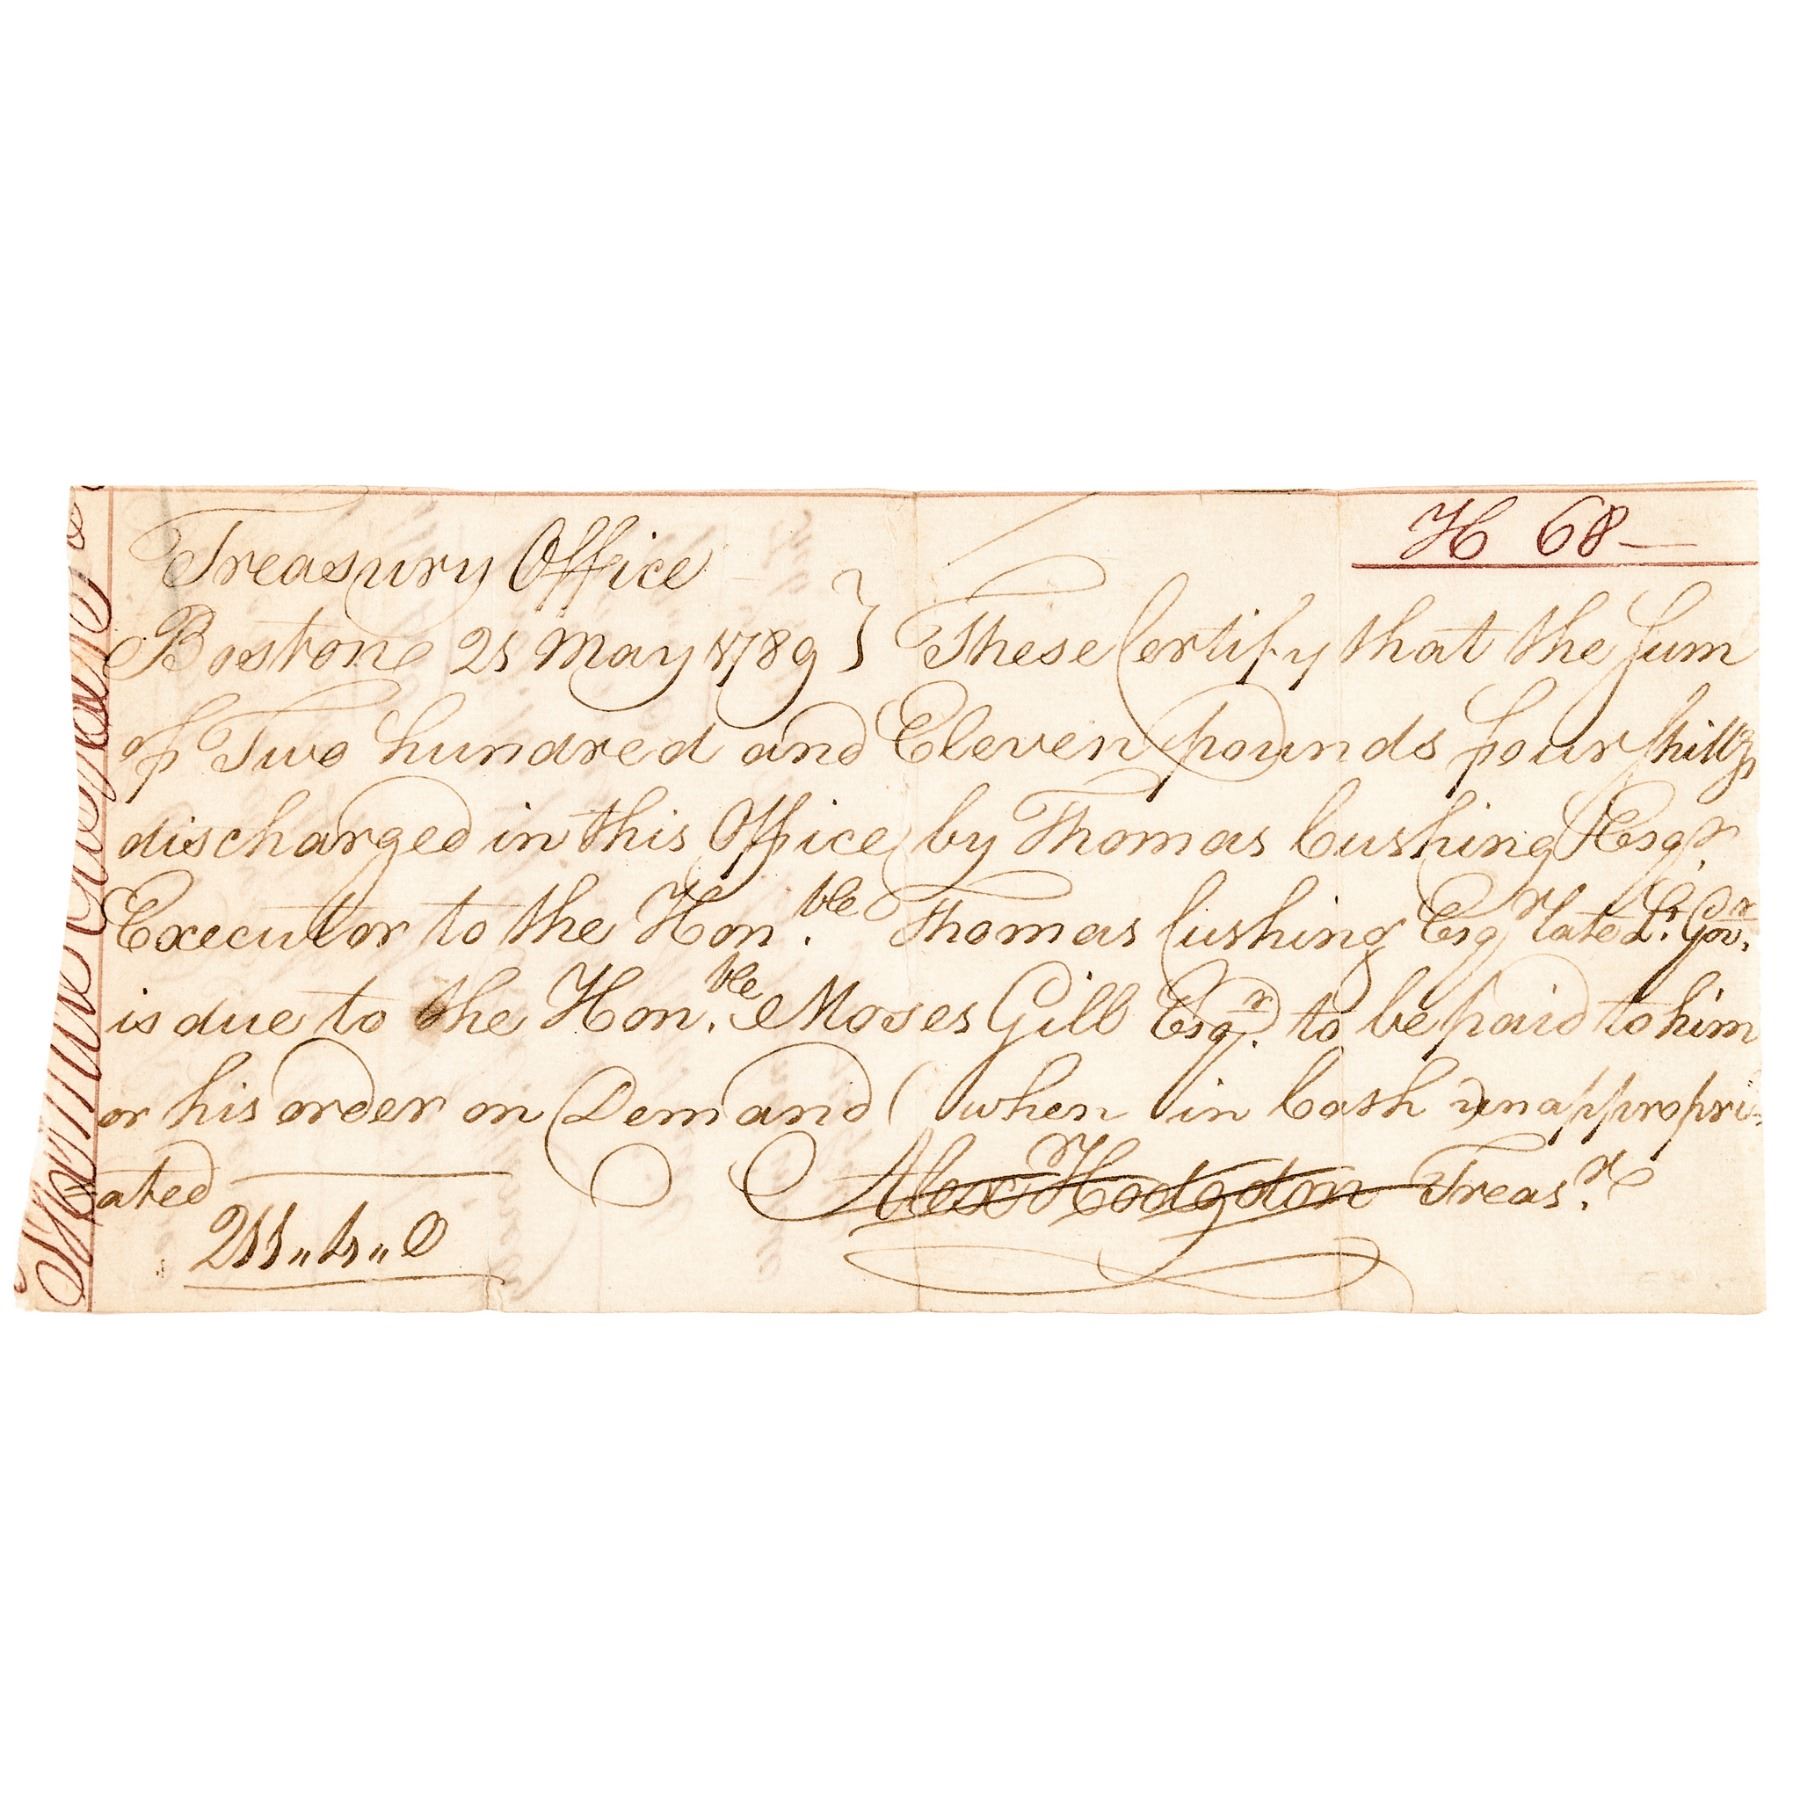 H 68
Treasury Office
Boston 21 May 1789 } These Certify that the Sum
of Two hundred and Eleven pounds four shillgs
discharged in this Office by Thomas Cushing Esqr.
Executor to the Hon.ble Thomas Cushing Esqr late Lt. Govr.
is due to the Hon.ble Moses Gill Esqr. to be paid to him
or his order on Demand (when in Cash unappropri-
ated
Alexr Hodgdon Treasr.
211,,4,,0